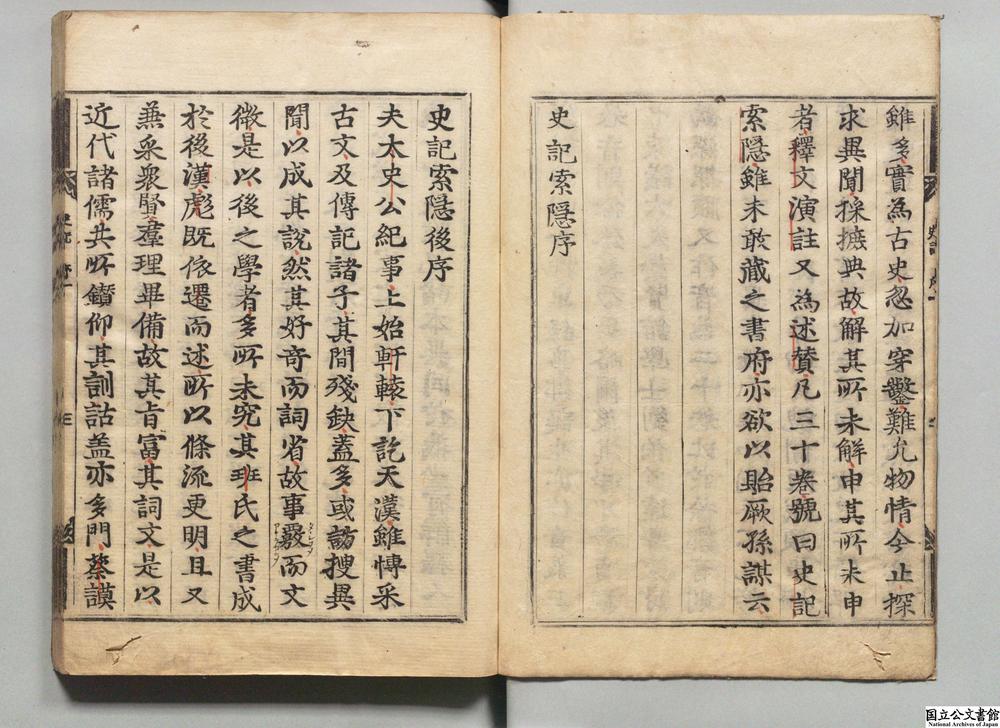 雖多實爲古史忽加穿鑿難允物情今止探
求異聞採摭典故解其所未解申其所未申
者釋文演註又爲述贊凡三十卷號曰史記
索隱雖未敢藏之書府亦欲以貽厥孫謀云
史記索隱序
史記索隱後序
夫太史公紀事上始軒轅下訖天漢雖博采
古文及傳記諸子其間殘缺蓋多或訪搜異
聞以成其說然其好奇而詞省故事覈而文
微是以後之學者多所未究其班氏之書成
於後漢彪既依遷而述所以條流更明且又
兼采衆賢羣理畢備故其旨富其詞文是以
近代諸儒共所鑽仰其訓詁盖亦多門蔡謨
国立公文書館
National Archives of Japan